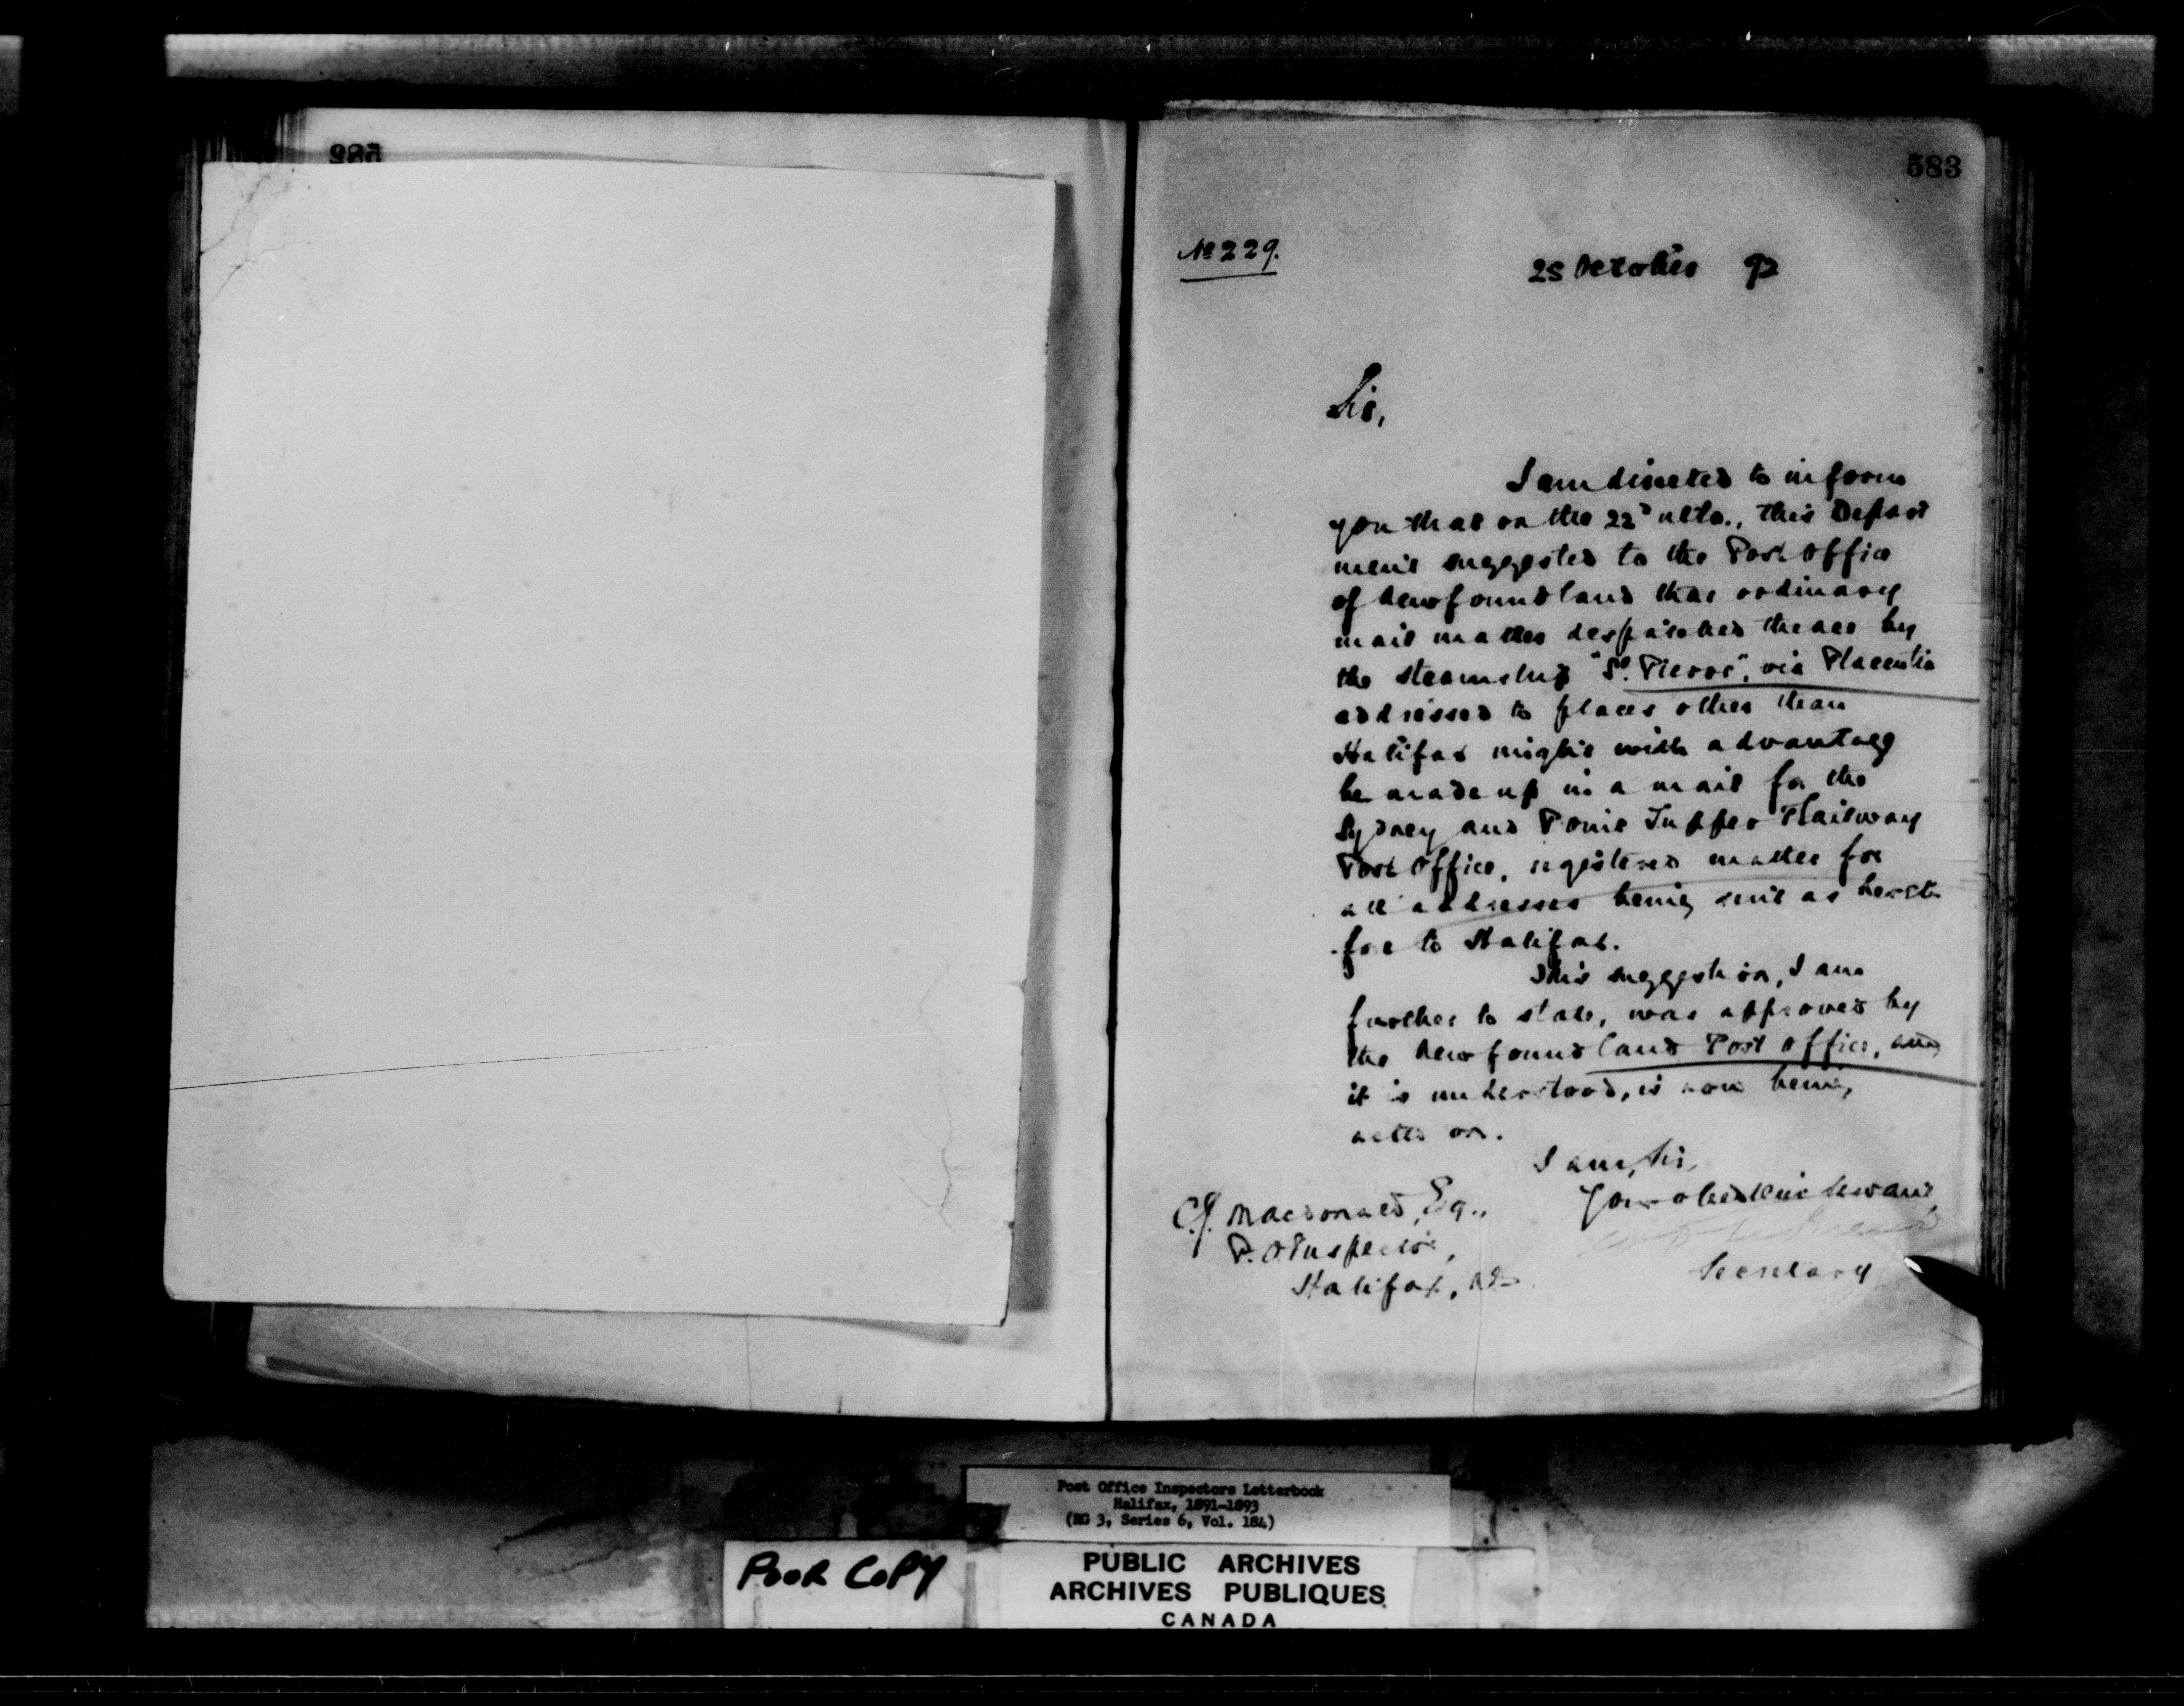 582
583
No 229.
25 October 92
Sir,
I am directed to inform
you that on the 22d ulto., this Depart
ment suggested to the Post Office
of Newfoundland that ordinary
mail matter despatched thence by
the steamship "St. Pierre", via Placentia
addressed to places other than
Halifax might with advantage
be made up in a mail for the
Sydney and Point Tupper Railway
Post Office, registered matter for
all addresses being sent as hereto
fore to Halifax.
This suggestion, I am
further to state, was approved by
the Newfoundland Post Office, and
it is understood, is now being
acted on.
I am, Sir,
Your obedient Servant,
Secretary
C.J. Macdonald, Esq.,
P.O. Inspector,
Halifax, N.S.
Post Office Inspectors Letterbook
Halifax, 1891-1893
(RG 3, Series 6, Vol. 184)
POOR COPY
PUBLIC ARCHIVES
ARCHIVES PUBLIQUES
CANADA